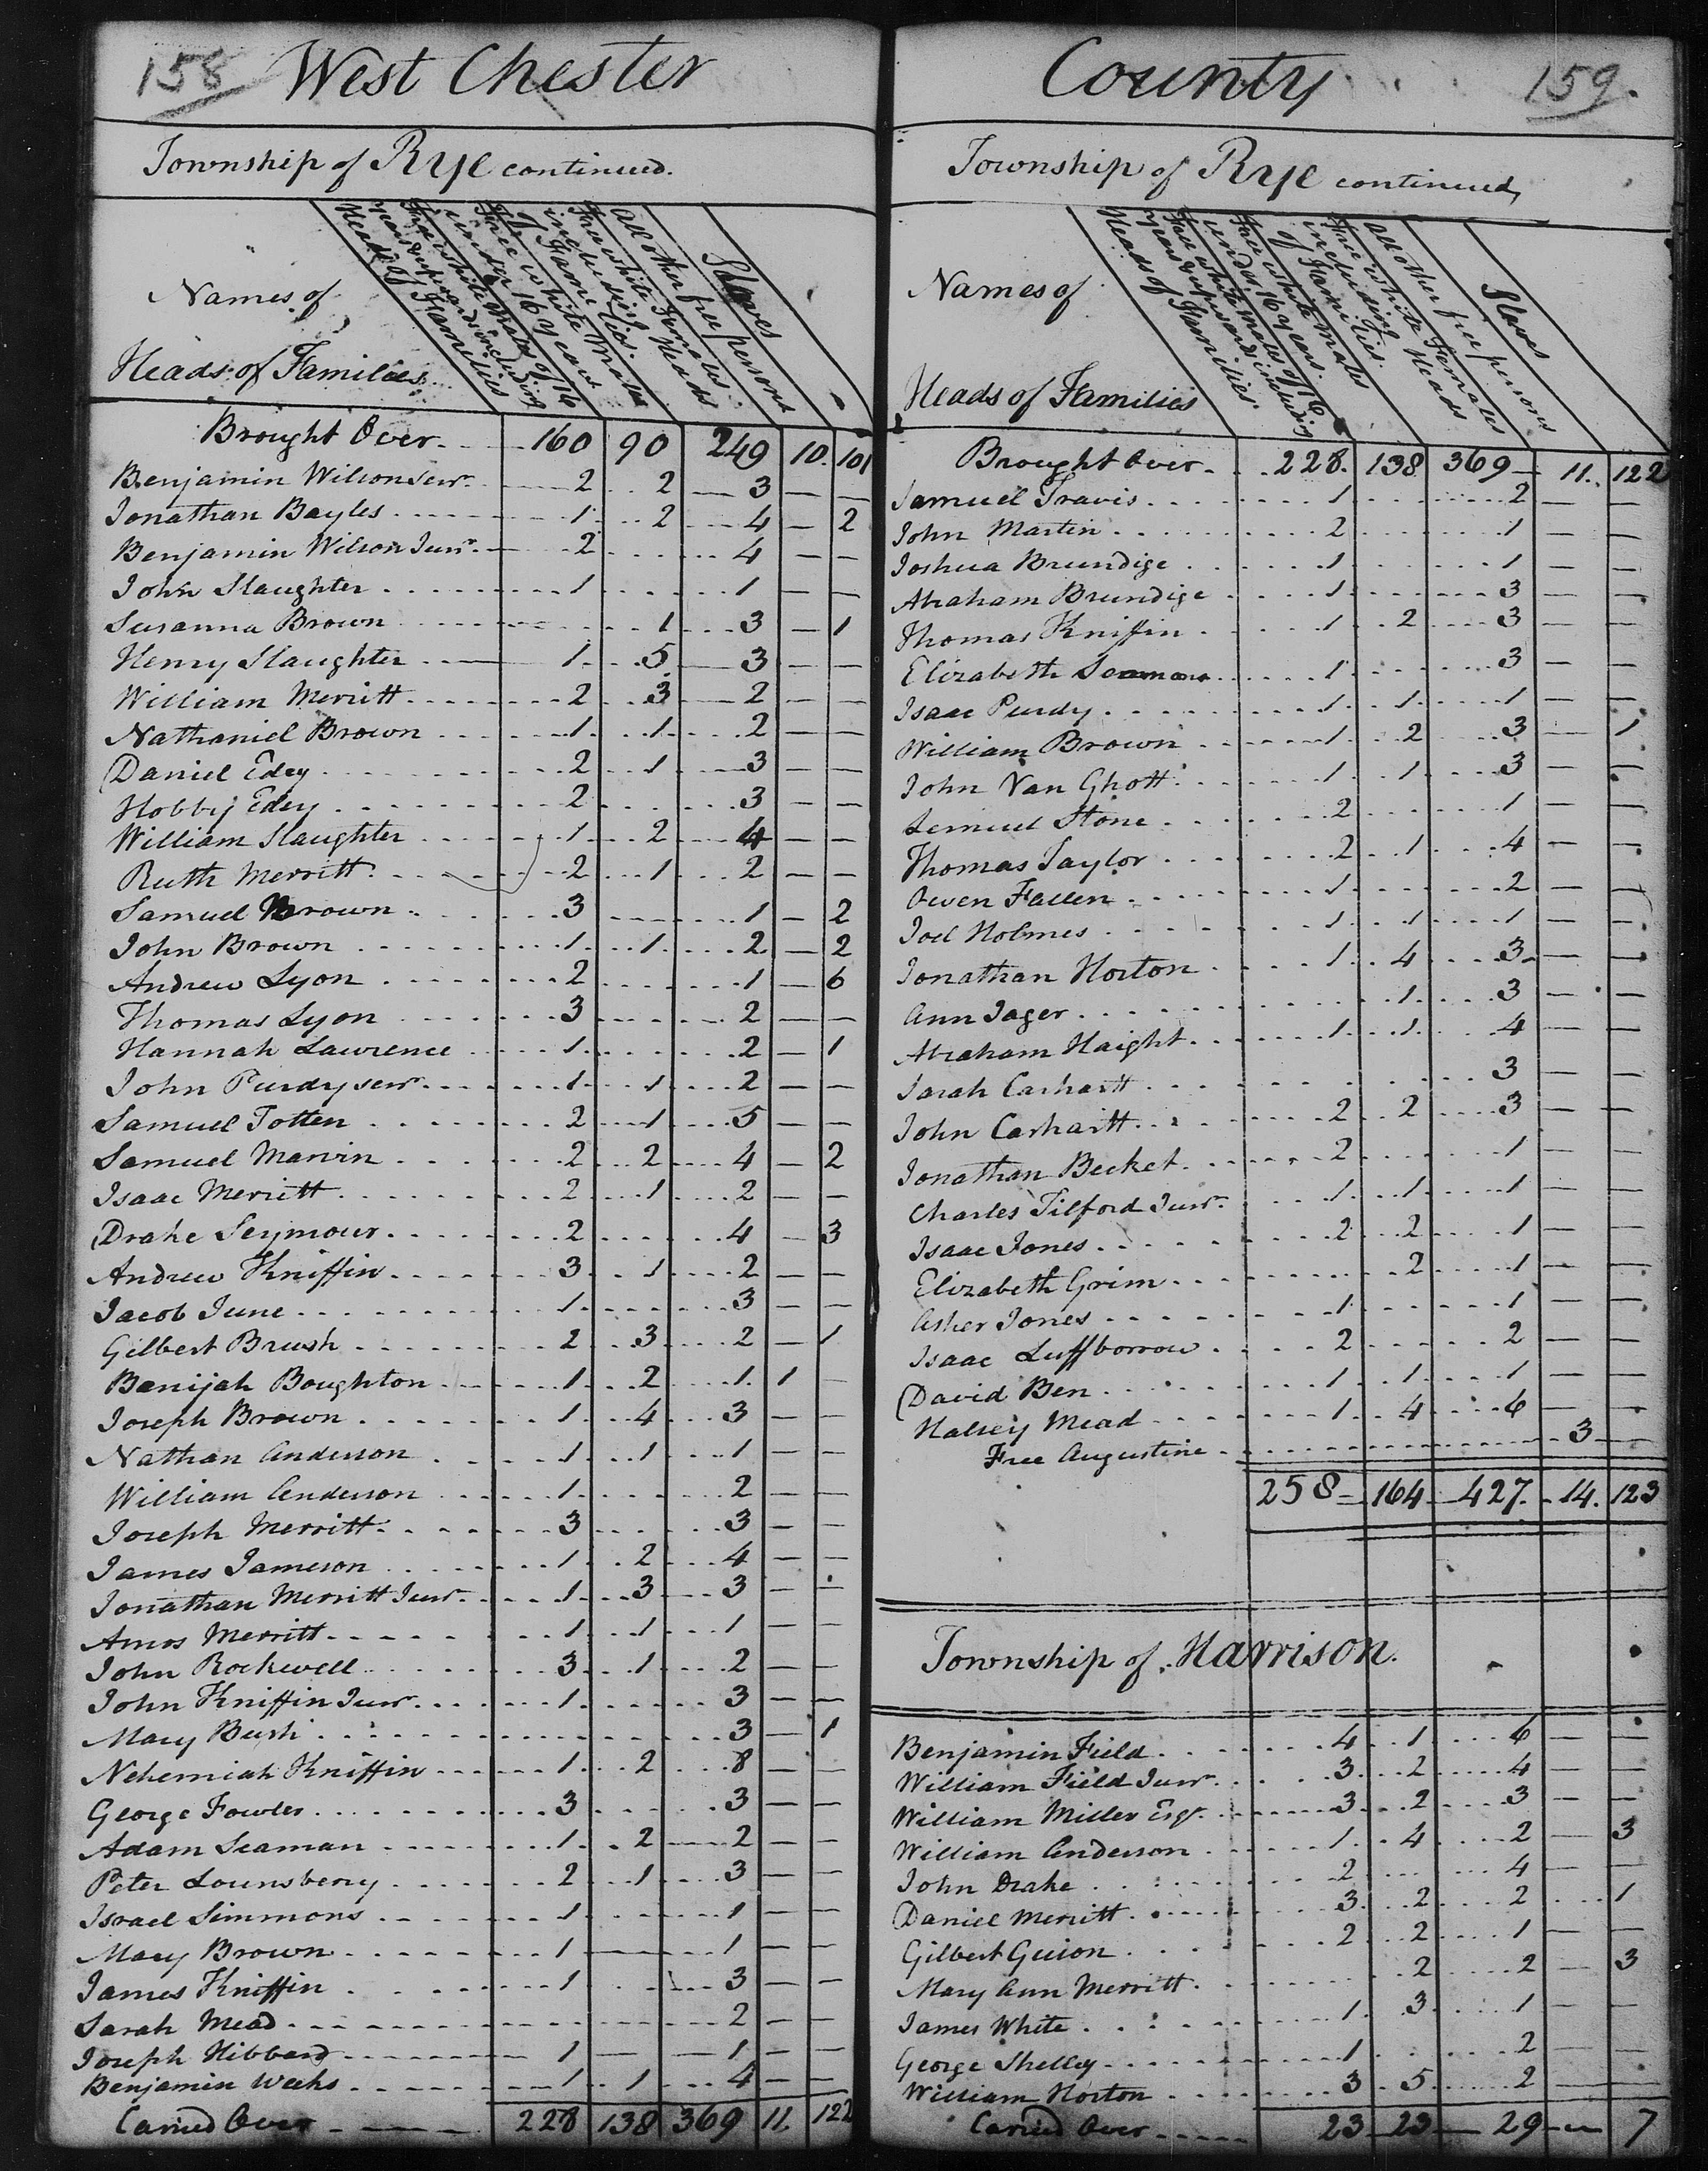 158 West Chester
Township of Rye continued.
Names of
Heads of Families
Free white Males of 16
years & upwards including
Heads of Families
Free white Males
under 16 years
Free white Females
including Heads
of Families.
All other free persons
Slaves
Brought Over 160 90 249 10. 101
Benjamin Wilson Senr. 2 2 3 — —
Jonathan Bayles 1 2 4 — 2
Benjamin Wilson Junr. 2 4 — —
John Slaughter 1 1 — —
Susanna Brown 1 3 — 1
Henry Slaughter 1 5 3 — —
William Merritt 2 3 2 — —
Nathaniel Brown 1 1 2 — —
Daniel Edey 2 1 3 — —
Hobby Edey 2 3 — —
William Slaughter 1 2 4 — —
Ruth Merritt 2 1 2 — —
Samuel Brown 3 1 — 2
John Brown 1 1 2 — 2
Andrew Lyon 2 1 — 6
Thomas Lyon 3 2 — —
Hannah Lawrence 1 2 — 1
John Purdy senr. 1 1 2 — —
Samuel Totten 2 1 5 — —
Samuel Marvin 2 2 4 — 2
Isaac Merritt 2 1 2 — —
Drake Seymour 2 4 — 3
Andrew Kniffin 3 1 2 — —
Jacob June 1 3 — —
Gilbert Brush 2 3 2 — 1
Benijah Boughton 1 2 1 1 —
Joseph Brown 1 4 3 — —
Nathan Anderson 1 1 1 — —
William Anderson 1 2 — —
Joseph Merritt 3 3 — —
James Jameson 1 2 4 — —
Jonathan Merritt Junr. 1 3 3 — —
Amos Merritt 1 1 1 — —
John Rockwell 3 1 2 — —
John Kniffin Junr. 1 3 — —
Mary Bush 3 — 1
Nehemiah Kniffin 1 2 8 — —
George Fowler 3 3 — —
Adam Seaman 1 2 2 — —
Peter Lounsberry 2 1 3 — —
Israel Simmons 1 1 — —
Mary Brown 1 — 1 — —
James Kniffin 1 3 — —
Sarah Mead 2 — —
Joseph Hibbard 1 — 1 — —
Benjamin Weeks 1 1 4 — —
Carried Over 228 138 369 11. 122
County 159.
Township of Rye continued,
Names of
Heads of Families
Free white Males of 16
years & upwards including
Heads of Families.
Free white Males
under 16 years.
Free white Females
including Heads
of Families.
All other free persons
Slaves
Brought Over 228. 138 369 11. 122
Samuel Travis 1 2 — —
John Martin 2 1 — —
Joshua Brundige 1 1 — —
Abraham Brundige 1 3 — —
Thomas Kniffin 1 2 3 — —
Elizabeth 1 3 — —
Isaac Purdy 1 1 1 — —
William Brown 1 2 3 — 1
John Van Ghott 1 1 3 — —
Lemuel Stone 2 1 — —
Thomas Taylor 2 1 4 — —
Owen Fallen 1 2 — —
Joel Holmes 1 1 1 — —
Jonathan Horton 1 4 3 — —
Ann Jager 1 3 — —
Abraham Haight 1 1 4 — —
Sarah Carhartt 3 — —
John Carhartt 2 2 3 — —
Jonathan Becket 2 1 — —
Charles Tilford Junr. 1 1 1 — —
Isaac Jones 2 2 1 — —
Elizabeth Grim 2 1 — —
Asher Jones 1 1 — —
Isaac Luffborrow 2 2 — —
David Ben 1 1 1 — —
Halsey Mead 1 4 6 — —
Free Augustine 3 —
258 164 427 14. 123
Township of Harrison.
Benjamin Field 4 1 6 — —
William Field Junr. 3 2 4 — —
William Miller Esqr. 3 2 3 — —
William Anderson 1 4 2 — 3
John Drake 2 4 — —
Daniel Merritt 3 2 2 1
Gilbert Guion 2 2 1 — —
Mary Ann Merritt 2 2 — 3
James White 1 3 1 — —
George Shelley 1 2 — —
William Horton 3 5 2 — —
Carried Over 23 23 29 — 7